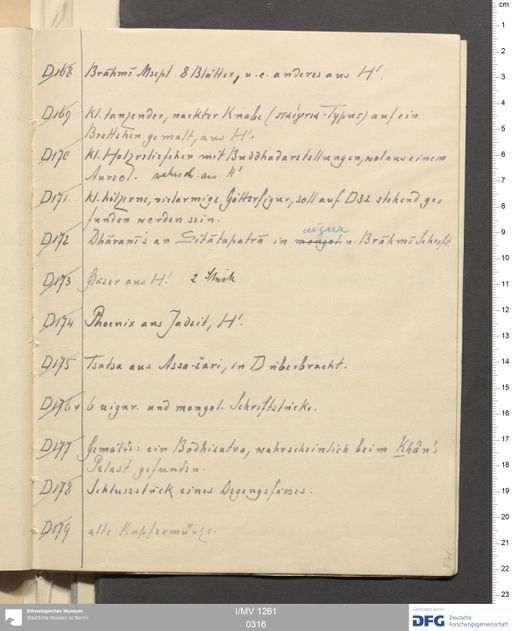 D168 Brāhmī Mscpt 8 Blätter, u. e. anderes aus H'.
D169 kl. tanzender, nackter Knabe (παίγνια-Typus) auf ein
Brettchen gemalt, aus H'.
D170 kl. Holzreliefchen mit Buddhadarstellungen, wol aus einem
Aureol. wahrsch. aus H'
D171 kl. hölzerne, vielarmige Götterfigur, soll auf D32 stehend ge=
funden worden sein.
uigur
D172 Dhāranī's an Sitātapatrā in mongol. u. Brāhmī Schrift
D173 Gläser aus H! 2 Stück
D174 Phoenix aus Jadeit, H'.
D175 Tsatsa aus Assa-šari, in D überbracht.
D176 6 uigur. und mongol. Schriftstücke.
D177 Gemälde: ein Bodhisatva, wahrscheinlich beim Khân's
Palast gefunden.
D178 Schlussstück eines Degengefässes.
D179 alte Kupfermünze.
cm
1
2
3
4
5
6
7
8
9
10
11
12
13
14
15
16
17
18
19
20
21
22
23
Ethnologisches Museum
Staatliche Museen zu Berlin
I/MV 1261
0316
Gefördert durch
DFG Deutsche
Forschungsgemeinschaft